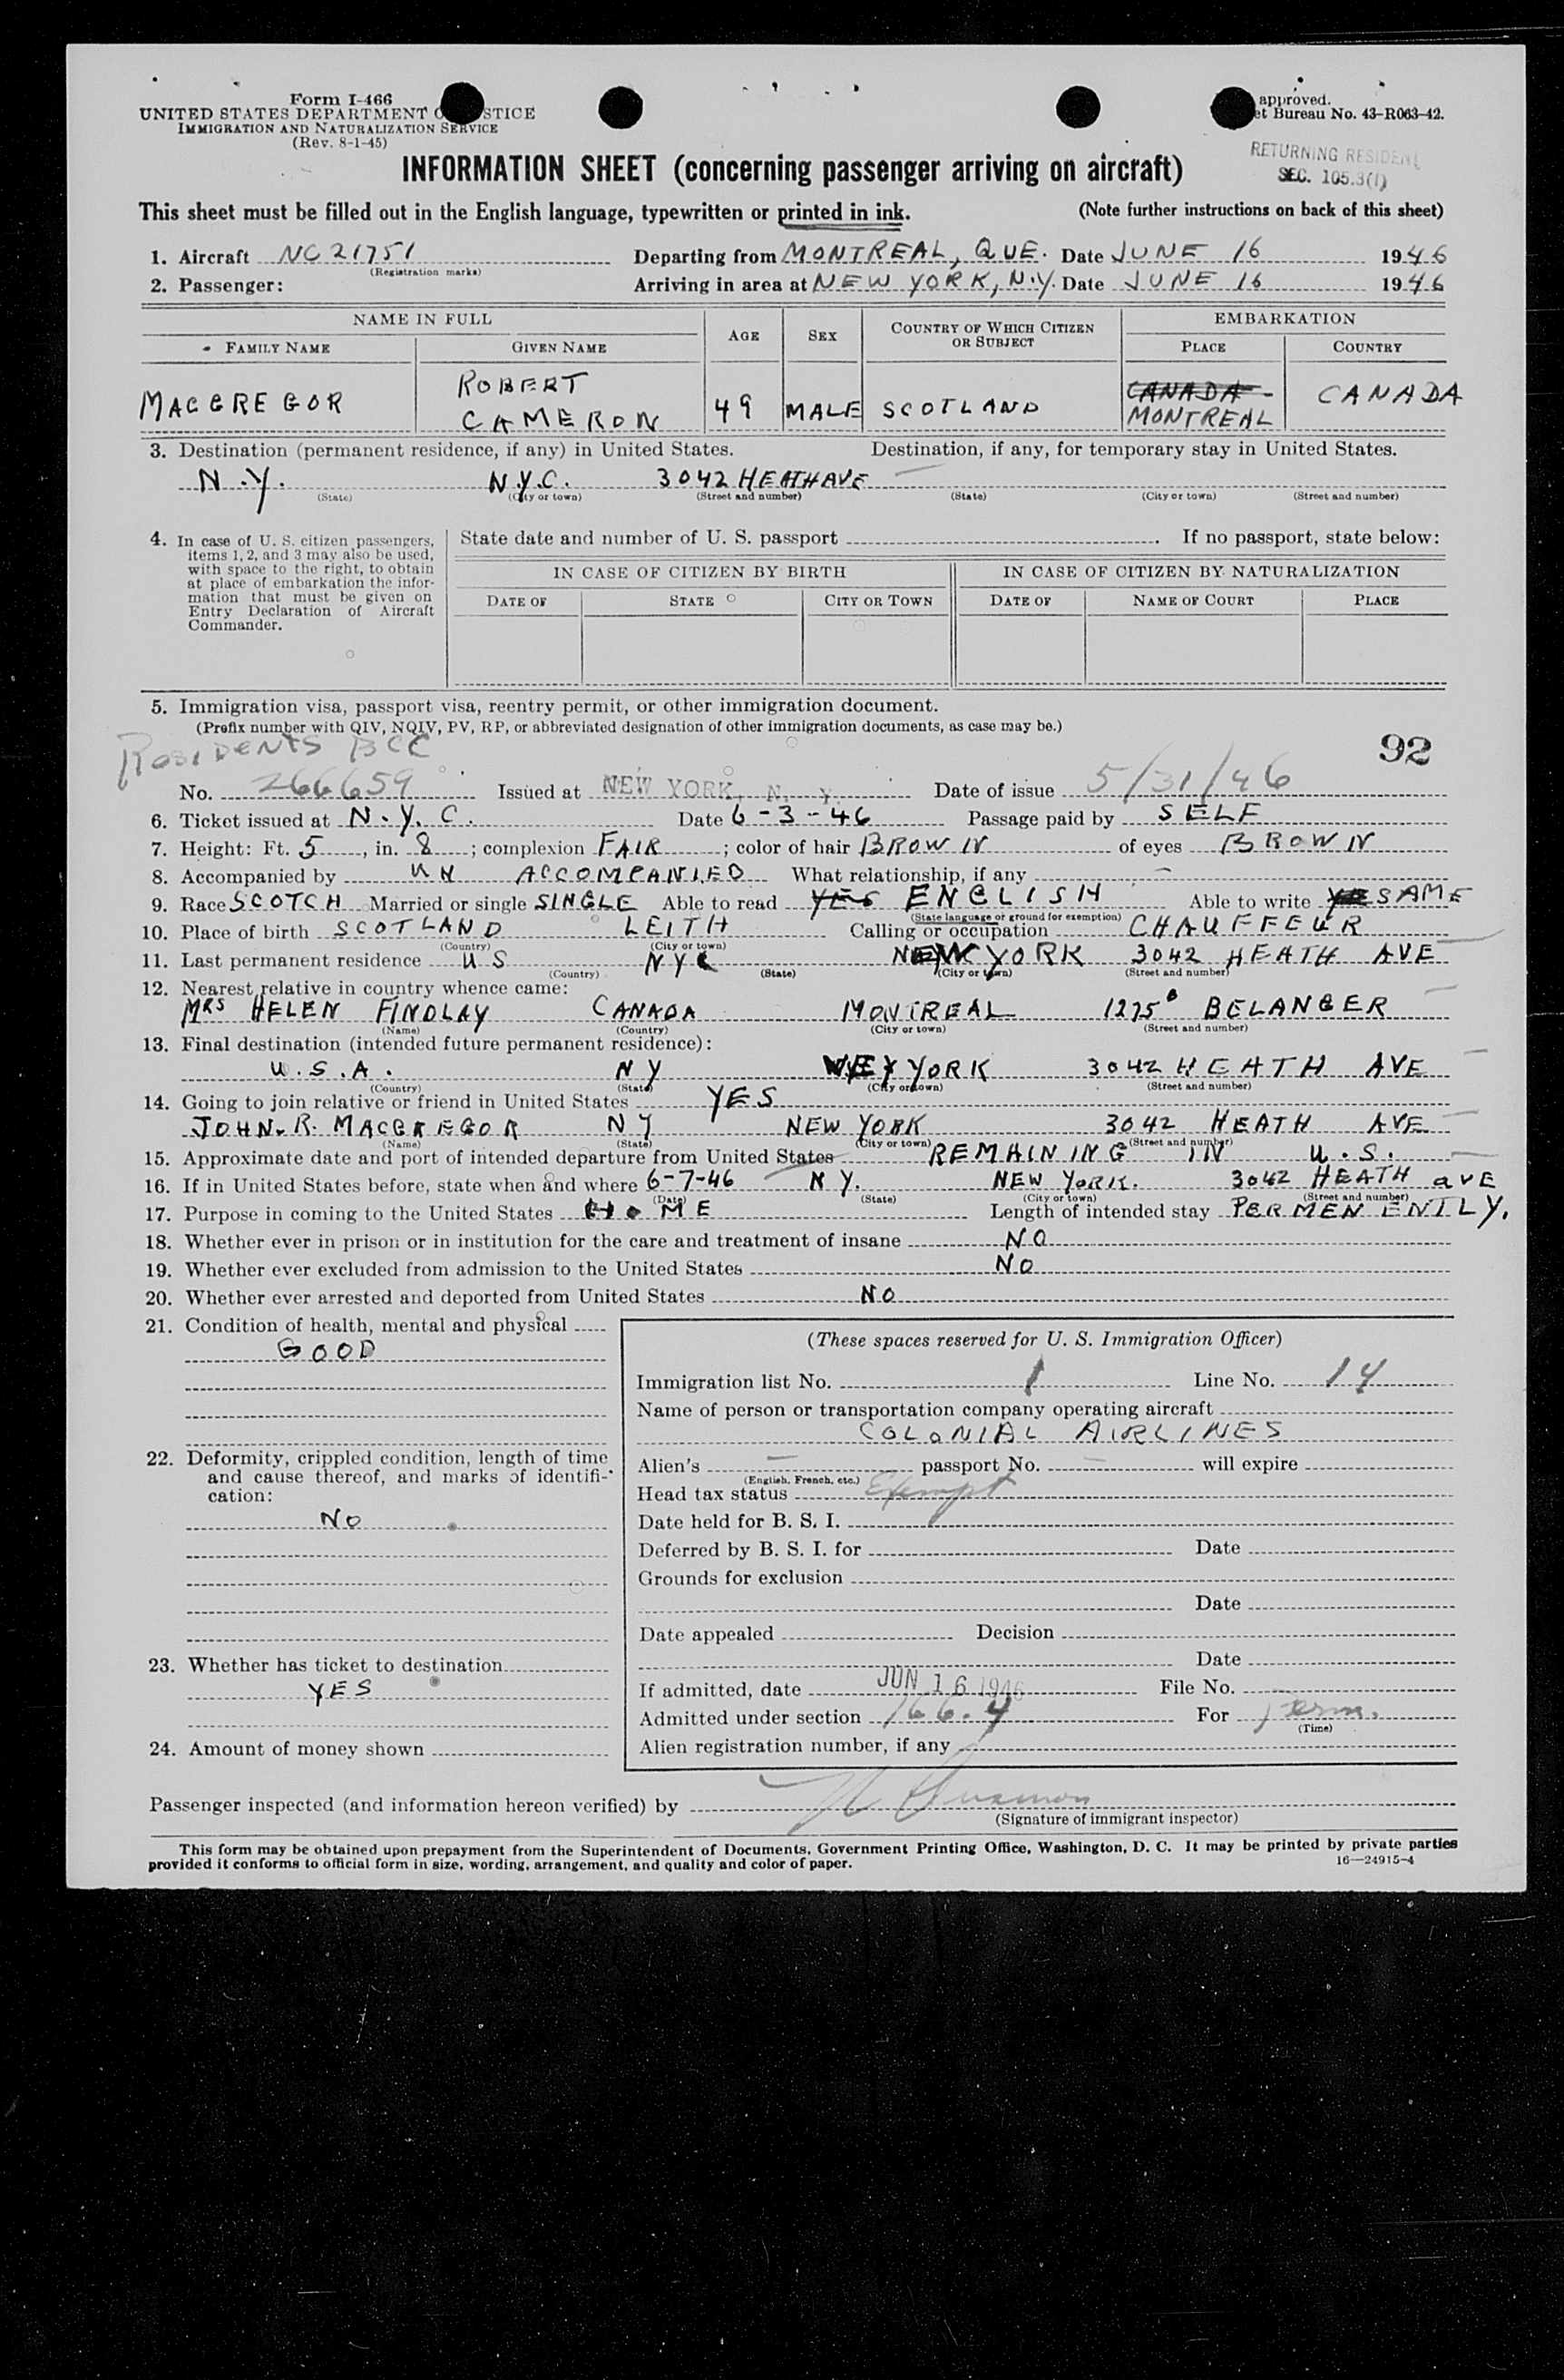 Form I-466
UNITED STATES DEPARTMENT O STICE
IMMIGRATION AND NATURALIZATION SERVICE
(Rev. 8-1-45)
approved.
et Bureau No. 43-R063-42.
RETURNING RESIDENT
SEC. 105.3(1)
INFORMATION SHEET (concerning passenger arriving on aircraft)
This sheet must be filled out in the English language, typewritten or printed in ink. (Note further instructions on back of this sheet)
1. Aircraft NC21751 Departing from MONTREAL, QUE. Date JUNE 16 1946
(Registration marks)
2. Passenger: Arriving in area at NEW YORK, N.Y. Date JUNE 16 1946
NAME IN FULL AGE SEX COUNTRY OF WHICH CITIZEN OR SUBJECT EMBARKATION
FAMILY NAME GIVEN NAME PLACE COUNTRY
MACGREGOR ROBERT CAMERON 49 MALE SCOTLAND CANADA MONTREAL CANADA
3. Destination (permanent residence, if any) in United States. Destination, if any, for temporary stay in United States.
N.Y. N.Y.C. 3042 HEATH AVE —
(State) (City or town) (Street and number) (State) (City or town) (Street and number)
4. In case of U. S. citizen passengers, items 1, 2, and 3 may also be used, with space to the right, to obtain at place of embarkation the information that must be given on Entry Declaration of Aircraft Commander.
State date and number of U. S. passport . If no passport, state below:
IN CASE OF CITIZEN BY BIRTH IN CASE OF CITIZEN BY NATURALIZATION
DATE OF STATE CITY OR TOWN DATE OF NAME OF COURT PLACE
5. Immigration visa, passport visa, reentry permit, or other immigration document.
(Prefix number with QIV, NQIV, PV, RP, or abbreviated designation of other immigration documents, as case may be.)
RESIDENTS BCC
92
No. 266659 Issued at NEW YORK, N. Y. Date of issue 5/31/46
6. Ticket issued at N.Y.C. Date 6-3-46 Passage paid by SELF
7. Height: Ft. 5, in. 8; complexion FAIR; color of hair BROWN of eyes BROWN
8. Accompanied by UN ACCOMPANIED What relationship, if any —
9. Race SCOTCH Married or single SINGLE Able to read YES ENGLISH Able to write YES SAME
(State language or ground for exemption)
10. Place of birth SCOTLAND LEITH Calling or occupation CHAUFFEUR
(Country) (City or town)
11. Last permanent residence US NYC NEW YORK 3042 HEATH AVE
(Country) (State) (City or town) (Street and number)
12. Nearest relative in country whence came:
MRS HELEN FINDLAY CANADA MONTREAL 1275 BELANGER
(Name) (Country) (City or town) (Street and number)
13. Final destination (intended future permanent residence):
U.S.A. NY NEW YORK 3042 HEATH AVE
(Country) (State) (City or town) (Street and number)
14. Going to join relative or friend in United States YES
JOHN. R. MACGREGOR NY NEW YORK 3042 HEATH AVE
(Name) (State) (City or town) (Street and number)
15. Approximate date and port of intended departure from United States REMAINING IN U.S.
16. If in United States before, state when and where 6-7-46 N Y. NEW YORK. 3042 HEATH AVE
(Date) (State) (City or town) (Street and number)
17. Purpose in coming to the United States HOME Length of intended stay PERMENENTLY.
18. Whether ever in prison or in institution for the care and treatment of insane NO
19. Whether ever excluded from admission to the United States NO
20. Whether ever arrested and deported from United States NO
21. Condition of health, mental and physical
GOOD
22. Deformity, crippled condition, length of time and cause thereof, and marks of identification:
NO
23. Whether has ticket to destination
YES
24. Amount of money shown
(These spaces reserved for U. S. Immigration Officer)
Immigration list No. 1 Line No. 14
Name of person or transportation company operating aircraft
COLONIAL AIRLINES
Alien's — passport No. — will expire
(English, French, etc.)
Head tax status Exempt
Date held for B. S. I.
Deferred by B. S. I. for Date
Grounds for exclusion
Date
Date appealed Decision
Date
If admitted, date JUN 16 1946 File No.
Admitted under section 166.4 For Perm.
(Time)
Alien registration number, if any
Passenger inspected (and information hereon verified) by
(Signature of immigrant inspector)
This form may be obtained upon prepayment from the Superintendent of Documents, Government Printing Office, Washington, D. C. It may be printed by private parties
provided it conforms to official form in size, wording, arrangement, and quality and color of paper.
16—24915-4